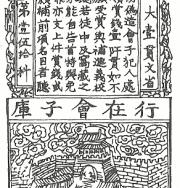 大壹貫文省
敕僞造會子犯人處
斬賞錢壹阡貫如不
願支賞與補進義校
尉若徒中及窩藏之
家能自告首特與免
罪亦支上件賞錢或
願補前項名目者聽
第壹伯拾料
行在會子庫